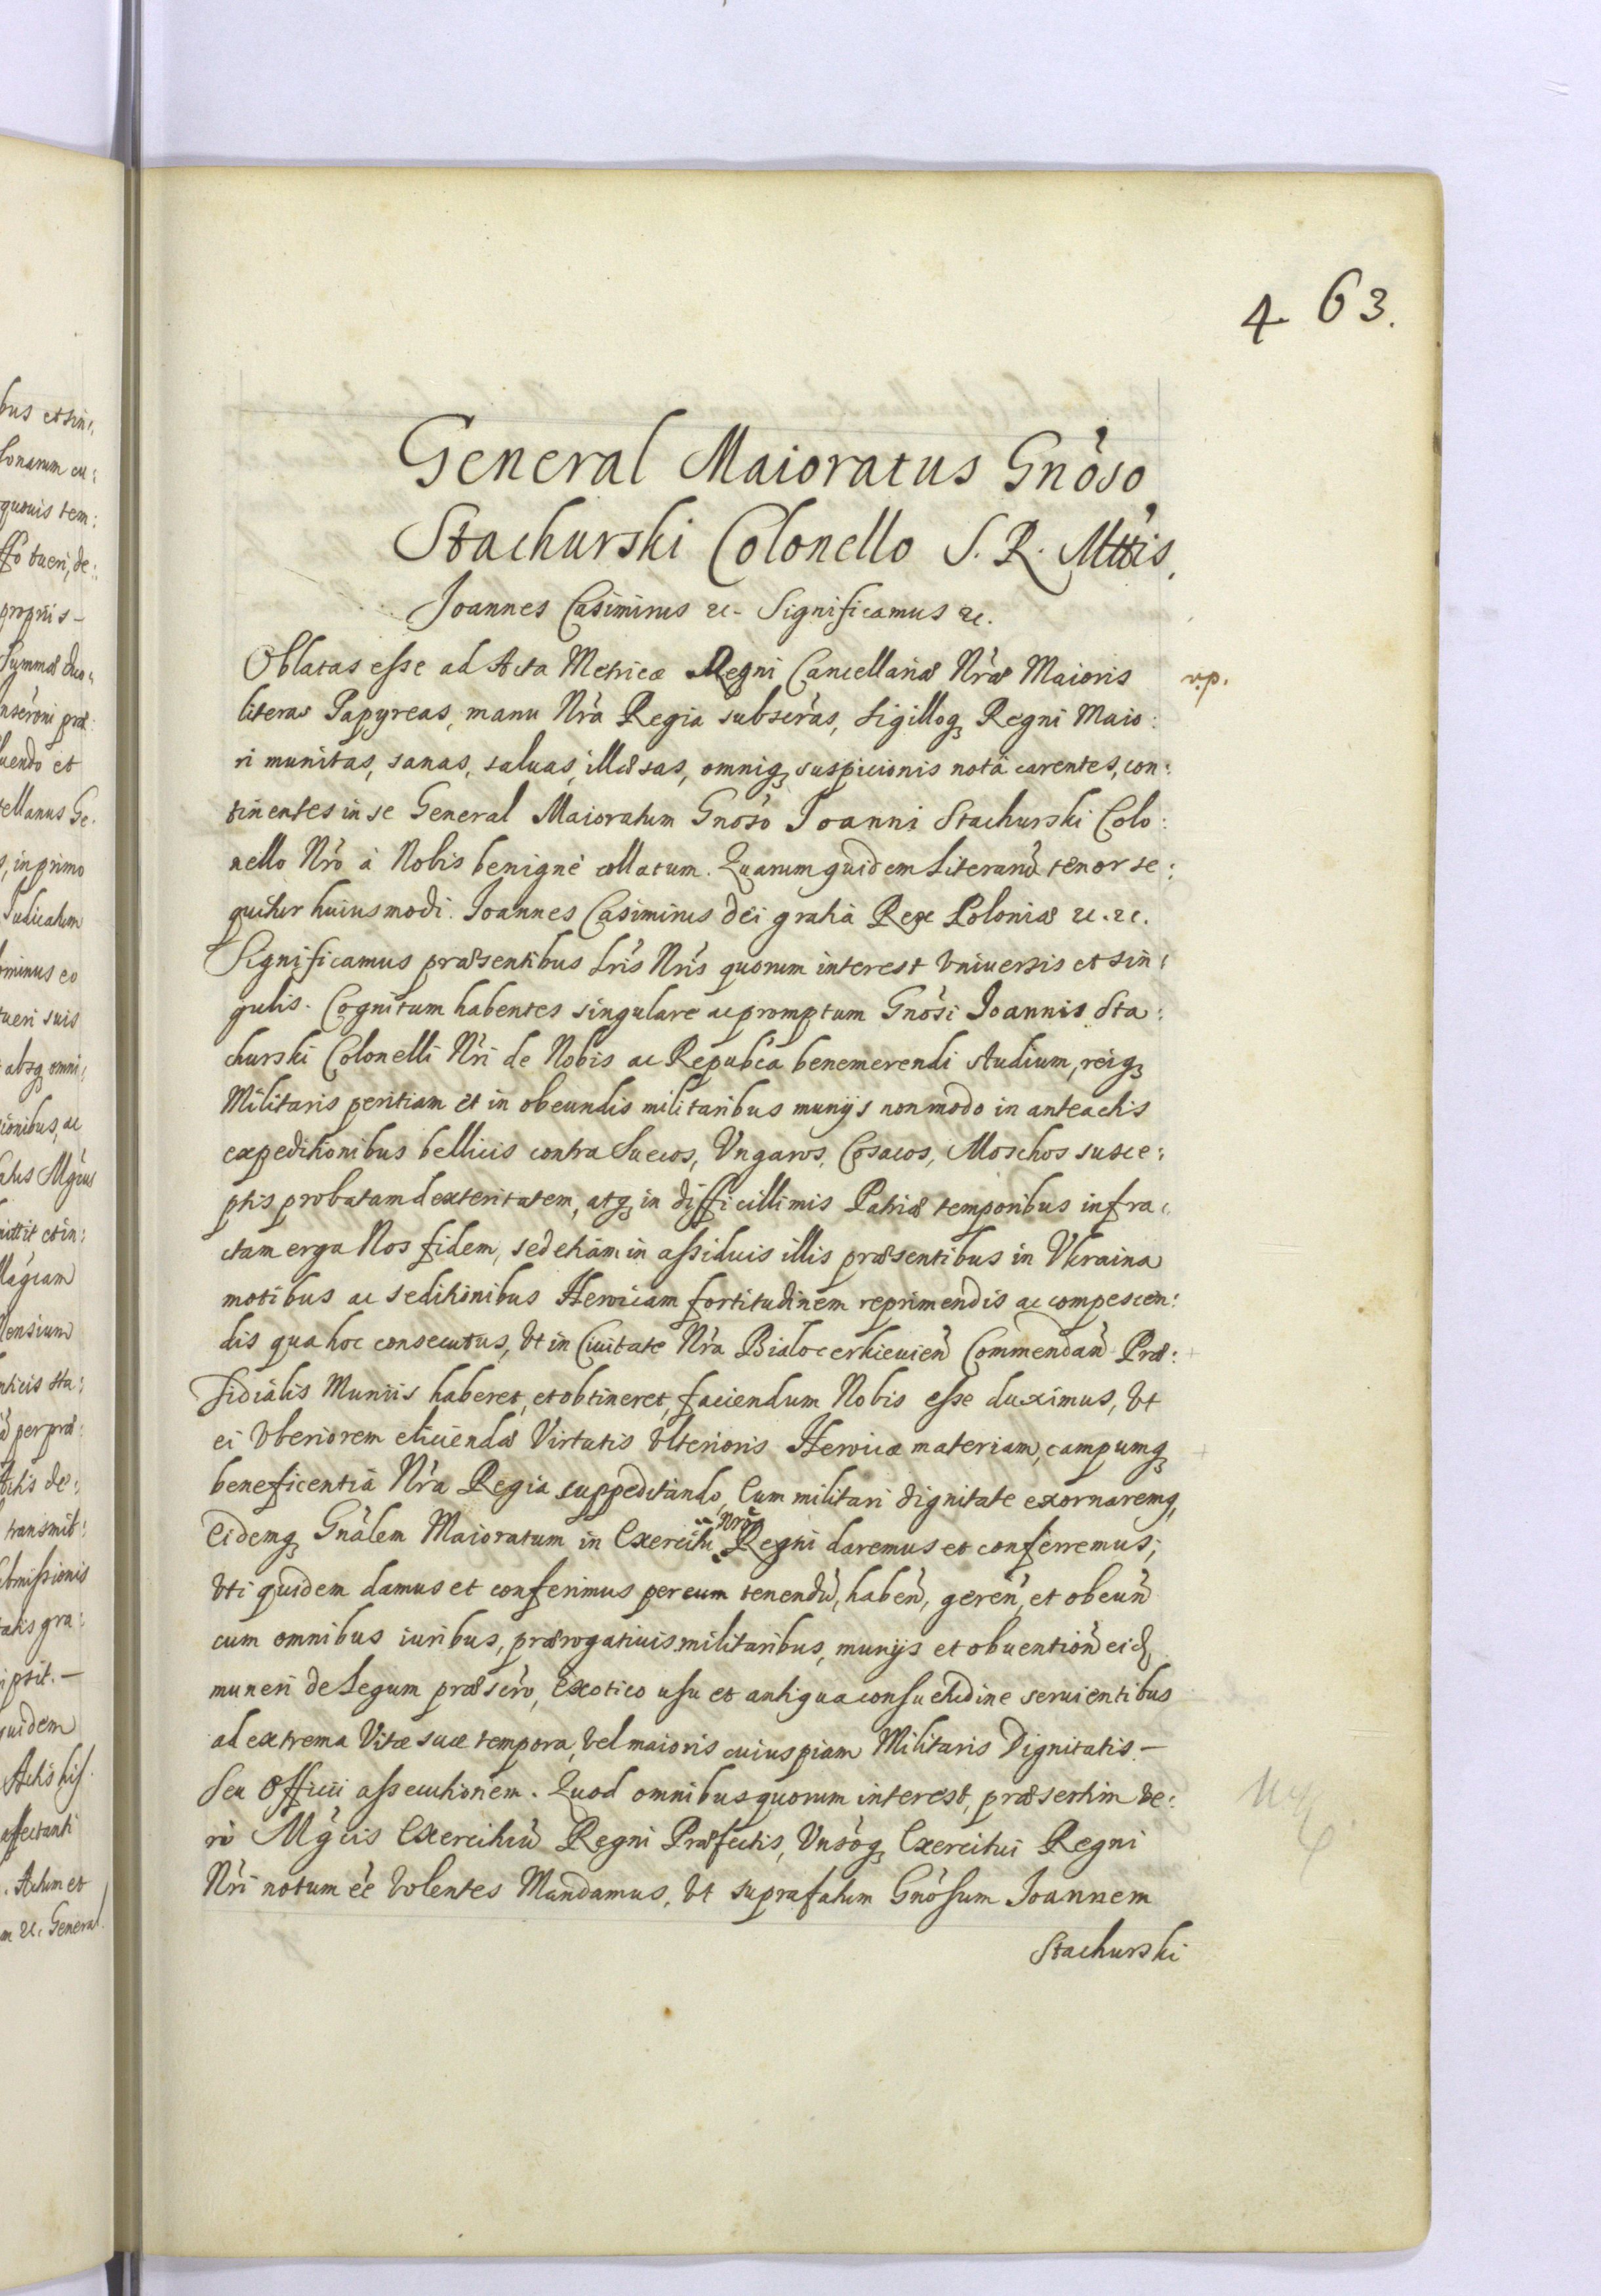 463.
General Maioratus Gnoso
Stachurski Colonello S. R. Mttis.
Joannes Casimirus etc. Significamus etc.
Oblatas esse ad Acta Metricæ Regni Cancellariæ Nræ Maioris
literas Papyreas, manu Nrà Regia subscràs, sigilloq Regni Maio:
ri munitas, sanas, saluas, illæsas, omniq suspicionis notâ carentes, con:
tinentes in se General Maioratum Gnoso Joanni Stachurski Colo:
nello Nrò à Nobis benignè collatum. Quarum quidem Literarù tenor se:
quitur huiusmodi. Joannes Casimirus dei gratiâ Rex Poloniæ etc. etc.
Significamus præsentibus Lris Nris quorum interest Vniuersis et sin:
gulis. Cognitum habentes singulare ac promptum Gnosi Joannis Sta:
churski Colonelli Nri de Nobis ac Repubca benemerendi studium, reiq
Militaris peritiam et in obeundis militaribus munijs non modo in anteactis
expeditionibus bellicis contra Suecos, Vngaros, Cosacos, Moschos susce:
ptis probatam dexteritatem, atq in difficillimis Patriæ temporibus infra:
ctam erga Nos fidem, sed etiàm in assiduis illis præsentibus in Vkraina
motibus ac seditionibus Heroicam fortitudinem reprimendis ac compescen:
dis qua hoc consecutus, Vt in Ciuitate Nrà Bialocerkieuien Commendan Præ:
sidialis Muniis haberet, et obtineret, faciendum Nobis esse duximus, Vt
ei Vberiorem eliciendæ Virtutis Vlterioris Heroicæ materiam, campumq
beneficentiâ Nrà Regia suppeditando, Cum militari dignitate exornaremq,
Eidemq Gnàlem Maioratum in Exercitu Nro Regni daremus et conferremus;
Vti quidem damus et conferimus per eum tenendù, haben, geren, et obeun
cum omnibus iuribus, prærogatiuis militaribus, munijs et obuention eid
muneri de Legum præscro, Exotico usu et antiqua consuetudine seruientibus
ad extrema Vitæ suæ tempora, Vel maioris cuiuspiam Militaris Dignitatis –
seu Officii assecutionem. Quod omnibus quorum interest, præsertim ve:
rò Mgcis Exercituù Regni Præfectis, Vnsòq Exercitui Regni
Nri notum eè Volentes Mandamus, Vt suprafatum Gnosum Joannem
Stachurski